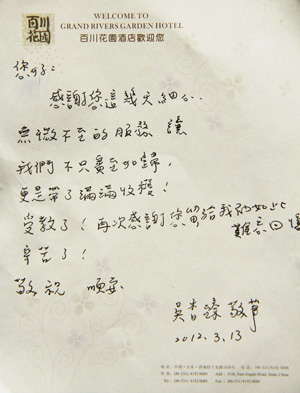 百川
花園
WELCOME TO
GRAND RIVERS GARDEN HOTEL
百川花園酒店歡迎您
您好：
感謝您這幾天細心、
無微不至的服務 讓
我們不只賓至如歸，
更是帶了滿滿收穫！
受教了！再次感謝您留給我們如此
難忘回憶
辛苦了！
敬祝 順安
吳香臻 敬筆
2012.3.13